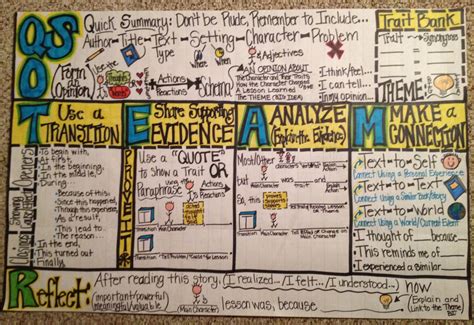 QSO
Quick Summary: Don't be Prude, Remember to Include...
Author-Title-Text-Setting-Character-Problem
Type
Where
When
& Adjectives
Trait Bank
Trait
Synonyms
Form an Opinion
Words
Actions
Thoughts
Reactions
Schema
AN OPINION ABOUT
The Character and Their Traits
How the Character Changed
A Lesson Learned
The THEME (BIG IDEA)
I think/feel...
I can tell...
In my opinion
TEAM
Use a TRANSITION
Share Supporting EVIDENCE
ANALYZE
(Explain the Evidence)
MAKE a CONNECTION
Openers
At first,
In the beginning,
In the middle,
During
Because of this,
Since this happened,
Through this experience,
As a result,
This lead to...
The reason...
In the end,
This turned out
Finally
PROVE IT
Use a "QUOTE"
to Show a Trait OR
Paraphrase
Transition
Main Character
Most/Other
I
because
Transition
Main Character
Text-to-Self
Connect Using a Personal Experience
Text-to-Text
Connect Using a Similar Book/Story
Text-to-World
Connect Using a World/Current Event
I thought of ___ because...
This reminds me of
I experienced a similar
R
Reflect:
After reading this story, (I realized... /I felt... /I understood...) how
(important/powerful/
meaningful/valuable)
lesson was, because
Main Character's
(Explain and
Link to the
Theme)